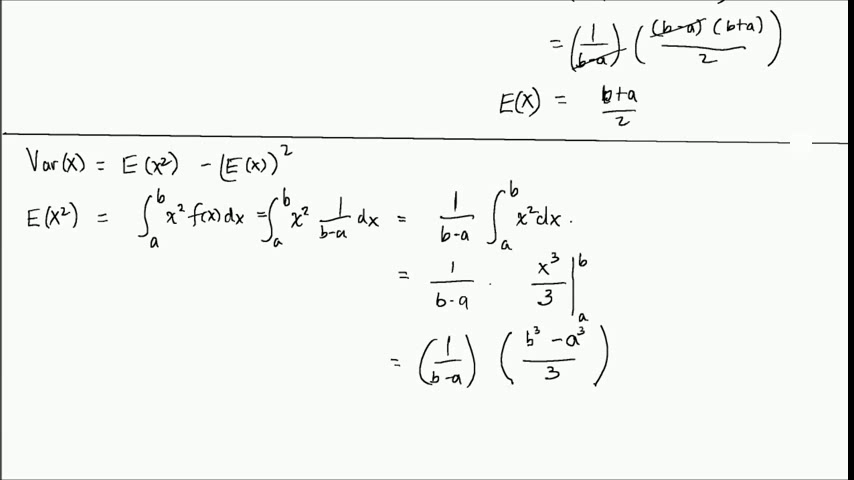 = (1/(b-a)) ((b-a)(b+a)/2)
E(X) = (b+a)/2
Var(X) = E(X²) - (E(X))²
E(X²) = ∫_a^b x² f(x)dx = ∫_a^b x² 1/(b-a) dx = 1/(b-a) ∫_a^b x² dx.
= 1/(b-a) · x³/3 |_a^b
= (1/(b-a)) ((b³-a³)/3)